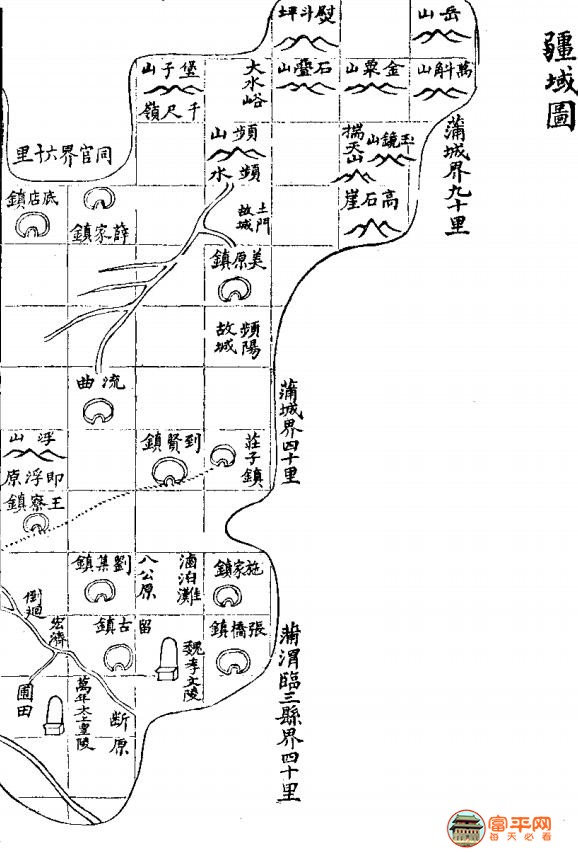 疆域圖
岳山
熨斗坪
萬斛山
金粟山
石疊山
大水峪
堡子山
千尺嶺
蒲城界九十里
玉鏡山
揣天山
頻山
頻水
同官界六十里
高石崖
土門故城
底店鎮
薛家鎮
美原鎮
頻陽故城
流曲
蒲城界四十里
莊子鎮
到賢鎮
浮山
即浮原
王寮鎮
施家鎮
滷泊灘
八公原
劉集鎮
倒迴
宏濟
張橋鎮
留古鎮
魏孝文陵
蒲渭臨三縣界四十里
圃田
萬年太上皇陵
断原
富平网
每天必看